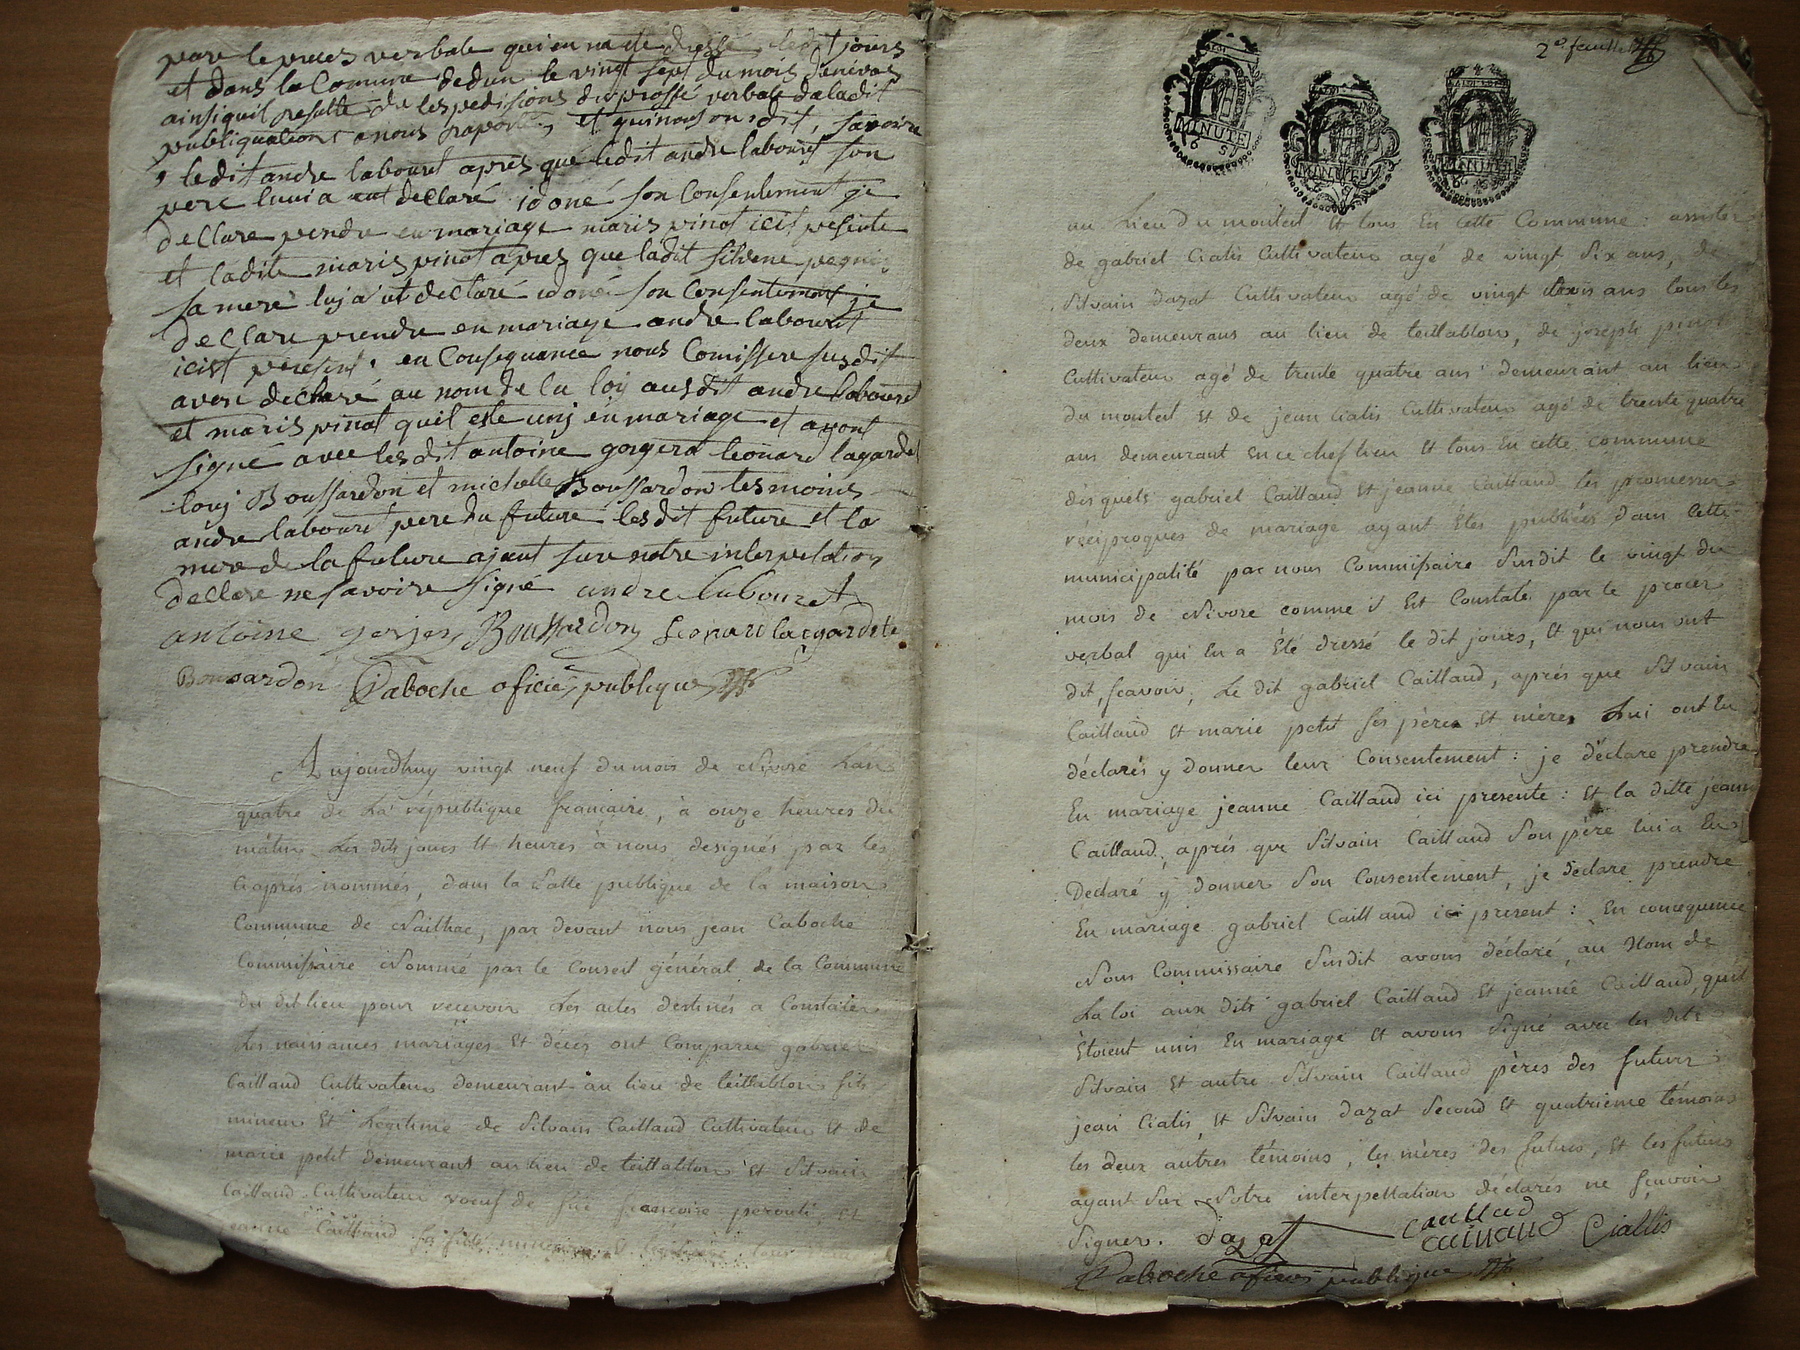 pare le proces verbale qui en na ete dressé ledit jours
et dans la Comune dedun le vingt sept du mois denivos
ainsi quil resulte de lespedisions du prossé verbale daladit
publiquation a nous raporté, et qui nous on dit, savoire
ledit andre labouret apres que ledit andre labouret son
pere luui a eut declaré idoné son Consentement je
declare prendre en mariage maris pinot icit presente
et ladite maris pinot apres que ladit silvene
sa mere luj a ut declaré idoné son Consentement je
declare prendre en mariage andre labouret
icist present. en Consequance nous Comissere susdit
avon declaré au nom de la loy ausdit andre labouret
et maris pinot quil este unj en mariage et avont
signé avec lesdit antoine gorgera leonard lagarde
louj Boussardon et michelle Boussardon tesmoins
andre labouret pere du future les dit future et la
mere de la future ajant sure notre interpelation
declare ne savoire signé andre labouret
antoine gorjeg Boussardon Leonard lagardete
Boussardon Caboche oficié publique
Aujourdhuy vingt neuf du mois de Nivôse Lan
quatre de La république francaire, à onze heures du
mâtin Les dits jours Et heures à nous designés par les
ci après nommés, dans la Salle publique de la maison
Commune de Naillac, par devant nous jean Caboche
Commissaire Nommé par le Conseil général de la Commune
du dit lieu pour recevoir Les actes destinés a Constater
Les naissances mariages Et décès ont Comparu gabriel
Caillaud Cultivateur demeurant au lieu de teillablons fils
mineur Et Légitime de Silvain Caillaud Cultivateur Et de
marie petit demeurant au lieu de teillablons Et Silvain
Caillaud Cultivateur voeuf de francoise Et
jeanne Caillaud sa fille mineure
2e feuillet
MINUTE
MINUTE
MINUTE
au Lieu du monteil Et tous En cette Commune: assistés
de gabriel Cialis Cultivateur agé de vingt Six ans, de
Silvain dazat Cultivateur agé de vingt trois ans tous les
deux demeurans au lieu de teillablons, de joseph pinot
Cultivateur agé de trente quatre ans demeurant au lieu
du monteil Et de jean Cialis Cultivateur agé de trente quatre
ans demeurant En ce chef lieu Et tous En cette Commune
des quels gabriel Caillaud Et jeanne Caillaud les promesses
réciproques de mariage ayant Etés publiées dans Cette
municipalité par nous Commissaire Susdit le vingt du
mois de Nivose comme il Est Constaté par le procès
verbal qui En a Été dressé le dit jour, Et qui nous ont
dit, scavoir; Le dit gabriel Caillaud, après que Silvain
Caillaud Et marie petit Ses pères Et mères Lui ont En
déclarés y donner leur Consentement: je déclare prendre
En mariage jeanne Caillaud ici presente: Et la ditte jeanne
Caillaud, après que Silvain Caillaud Son père lui a En
Declaré y donner Son Consentement, je déclare prendre
En mariage gabriel Caillaud ici present: En consequence
Nous Commissaire Susdit avons déclaré, au Nom de
La loi aux dits gabriel Caillaud Et jeanne Caillaud, quil
Étoient unis En mariage Et avons Signé avec les dits
Silvain Et autre Silvain Caillaud pères des futurs
jean Cialis, Et Silvain dazat Second Et quatrieme témoins
les deux autres témoins, les mères des futurs, Et les futurs
ayant Sur Notre interpellation déclarés ne scavoir
Signer. dazat Caillaud
Caillaud Ciallis
Caboche oficier publique